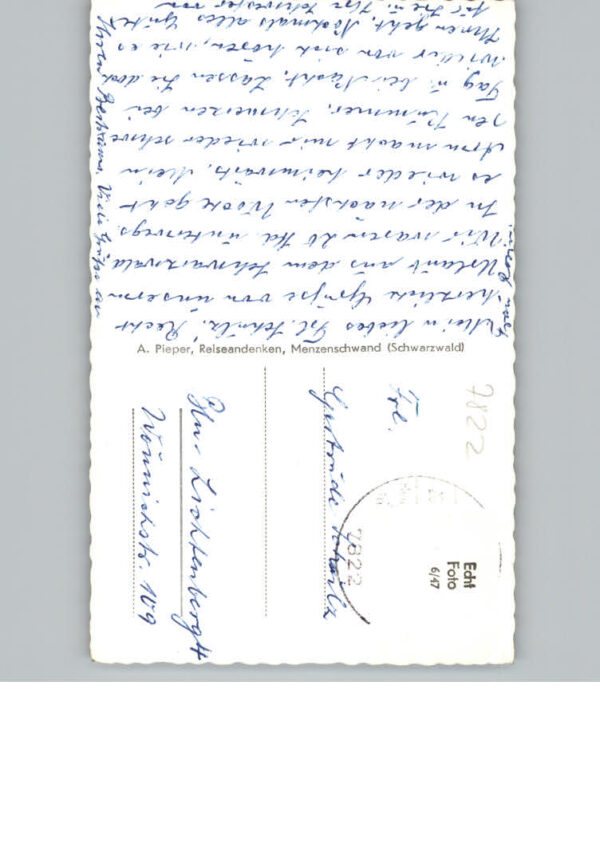 Mein liebes Frl. Schulz! Recht
herzliche Grüße von unserm
Urlaub aus dem Schwarzwald
Wir waren 20 Std. unterwegs
In der nächsten Woche geht
es wieder heimwärts, Mein
Arm macht mir wieder schwe
ren Kummer, Schmerzen bei
Tag u. bei Nacht. Lassen Sie doch
wieder von sich hören, wie es
Ihnen geht. Nochmals alles Gute
für Sie u. Ihre Schwester von
Viele Grüße an
A. Pieper, Reiseandenken, Menzenschwand (Schwarzwald)
7822
7822
Echt
Foto
6/47
Frl.
Gertrude Schulz
Bln. Lichtenberg 4
Wönnichstr. 109